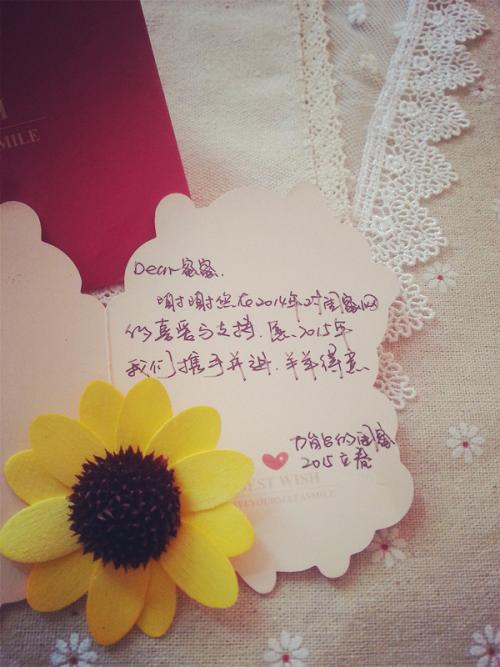 H
SMILE
Dear蜜蜜.
谢谢您在2014年对闺蜜网
的喜爱与支持.愿2015年
我们携手并进.羊羊得意.
的闺蜜
2015立春
EST WISH
VEYOURSELFASMILE